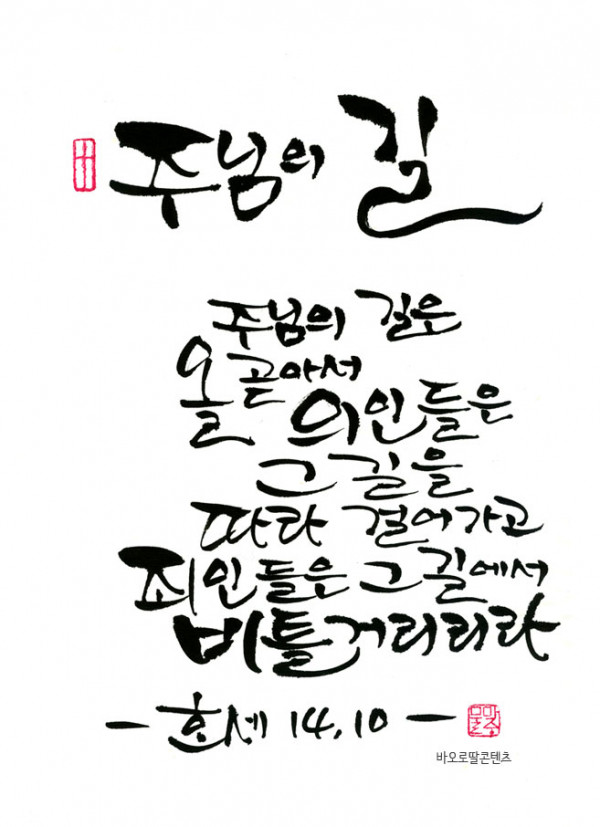 주님의 길
주님의 길은
올곧아서
의인들은
그 길을
따라 걸어가고
죄인들은 그 길에서
비틀거리리라
- 호세 14,10 -
바오로딸콘텐츠